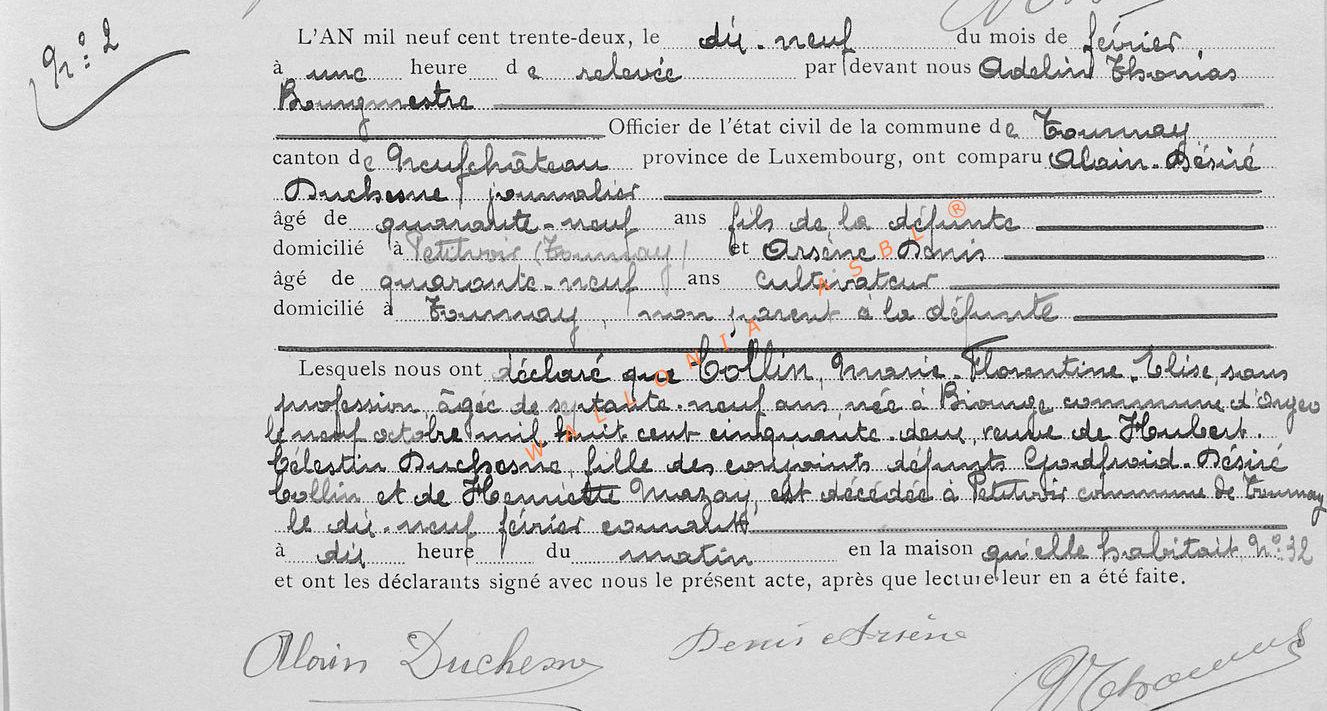 N°: 2
L'AN mil neuf cent trente-deux, le dix-neuf du mois de février,
à une heure de relevée par devant nous Adelin Thomas
Bourgmestre
Officier de l'état civil de la commune de Tournay
canton de Neufchâteau province de Luxembourg, ont comparu Alain-Désiré
Duchesne, journalier
âgé de quarante-neuf ans fils de la défunte
domicilié à Petitvoir (Tournay) et Arsène Denis
âgé de quarante-neuf ans cultivateur
domicilié à Tournay, non parent à la défunte
Lesquels nous ont déclaré que Collin, Marie-Florentine-Elise, sans
profession, âgée de septante-neuf ans, née à Biourge commune d'Orgeo
le neuf octobre mil huit cent cinquante-deux, veuve de Hubert-
Célestin Duchesne, fille des conjoints défunts Godfroid-Désiré
Collin et de Henriette Mazay, est décédée à Petitvoir commune de Tournay
le dix-neuf février courant
à dix heure du matin en la maison qu'elle habitait N°: 32
et ont les déclarants signé avec nous le présent acte, après que lecture leur en a été faite.
Alain Duchesne Denis Arsène
AThomas
WALLONIA ASBL ®